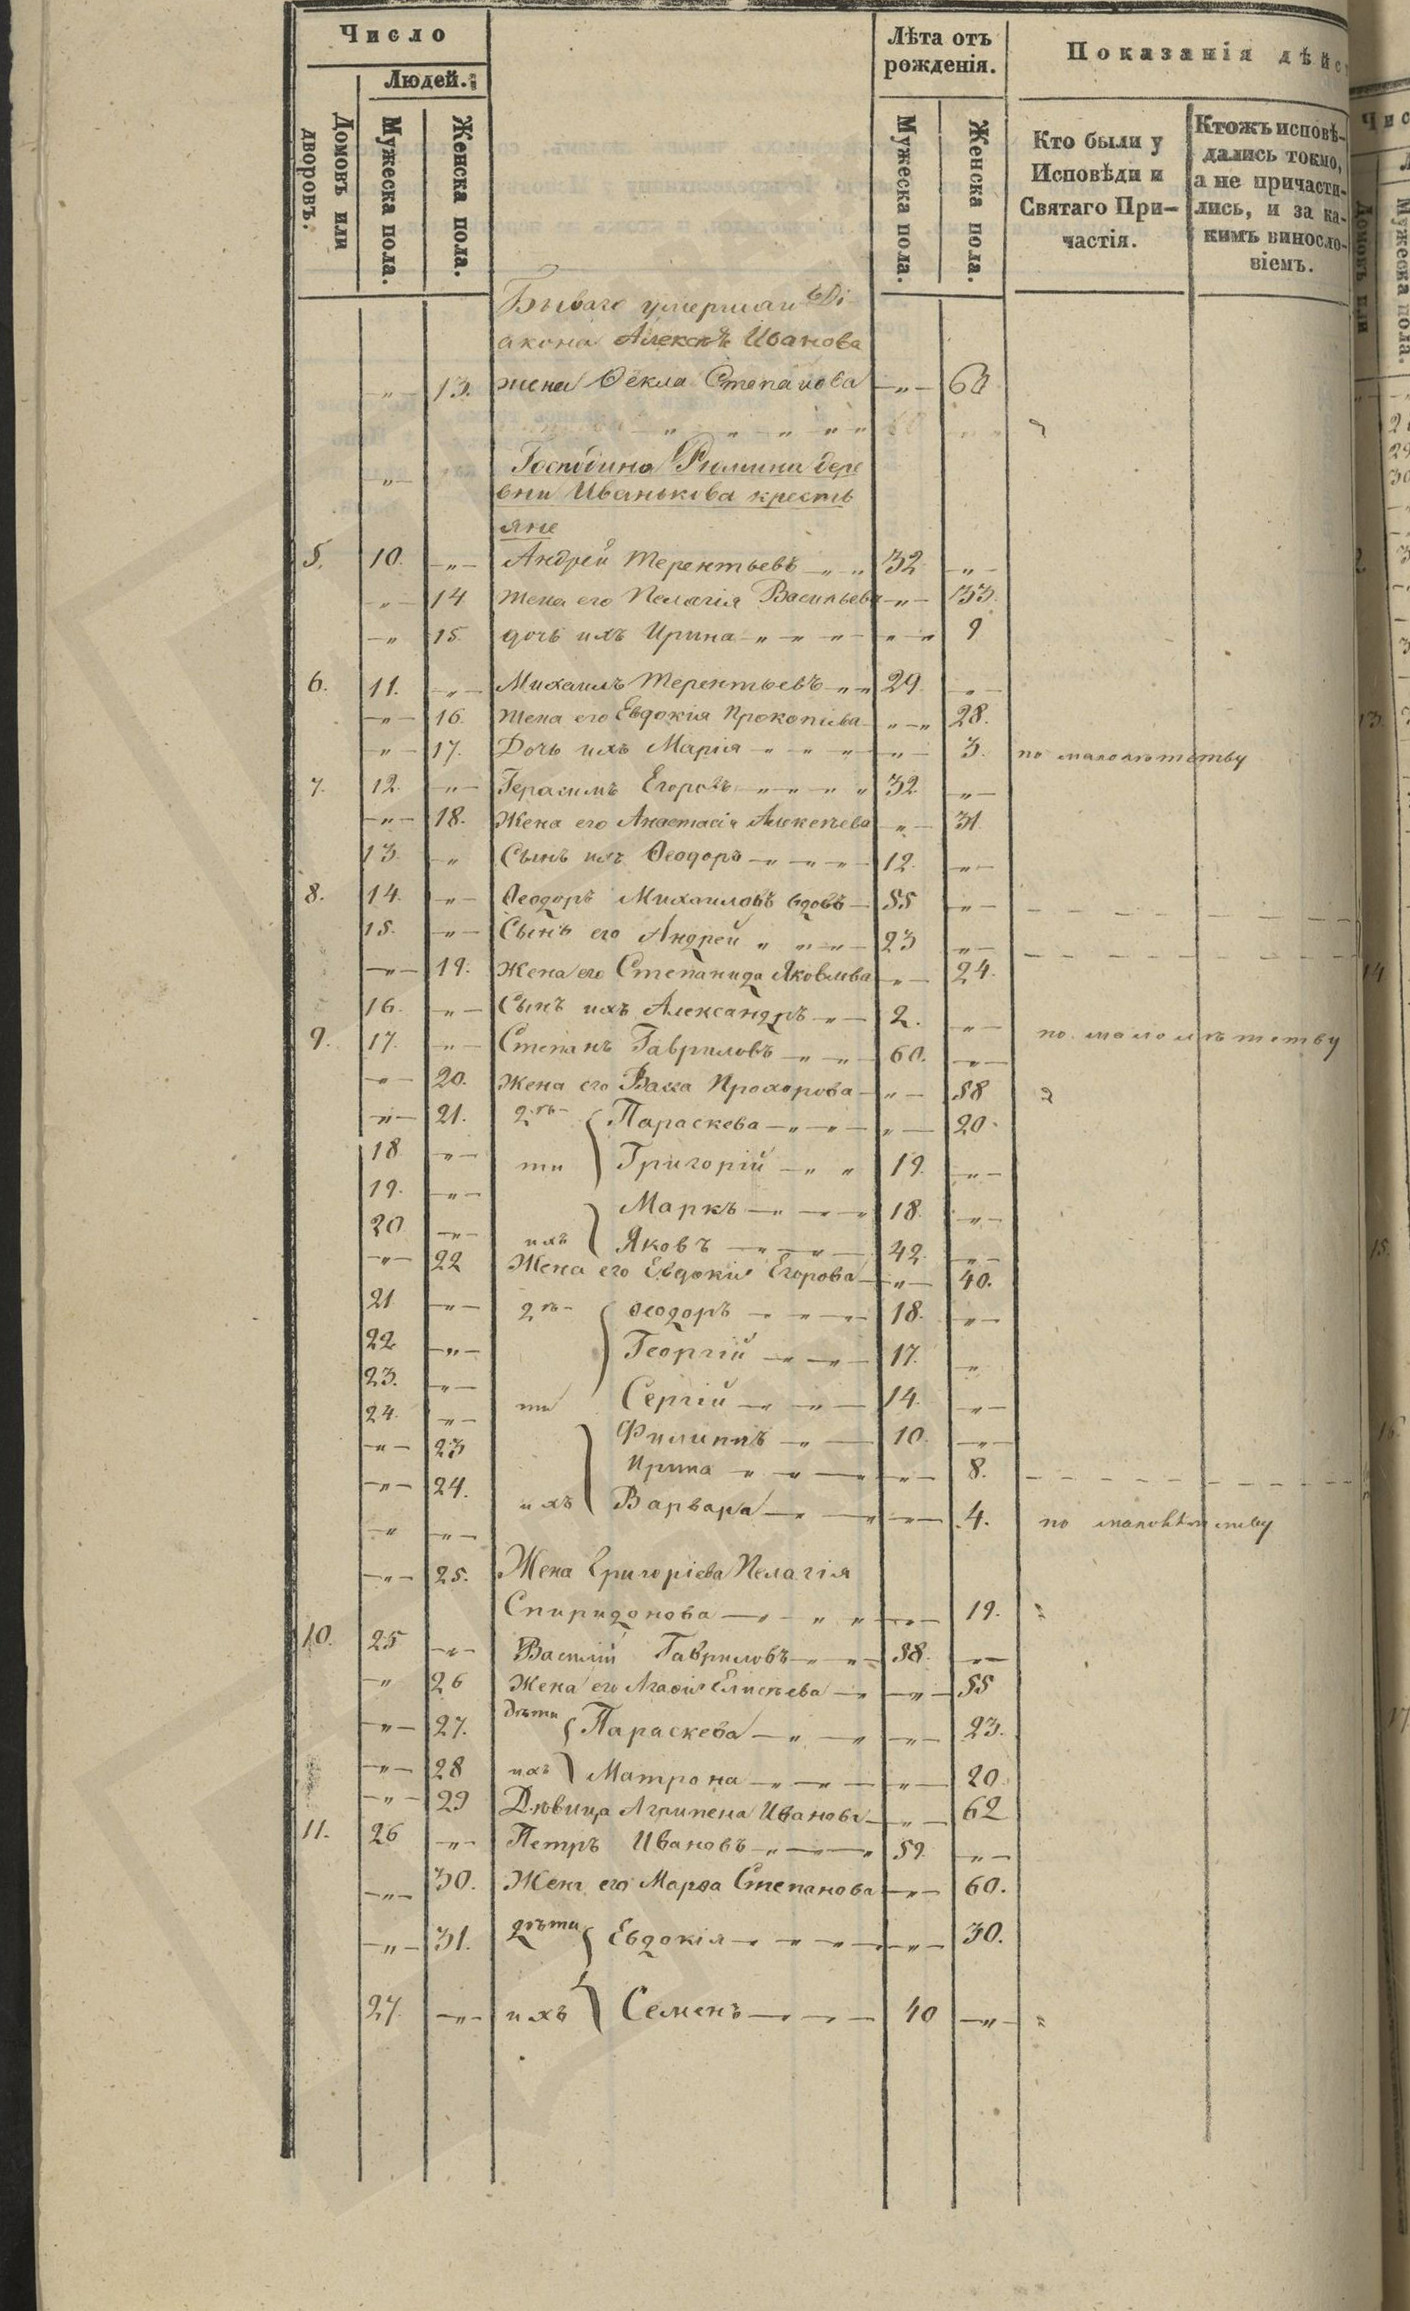 Число
Людей.
Домовъ или дворовъ.
Мужеска пола.
Женска пола.
Лѣта отъ рожденія.
Мужеска пола.
Женска пола.
Показанія дѣйс
Кто были у Исповѣди и Святаго Причастія.
Ктожъ исповѣдались токмо, а не причастились, и за какимъ винословіемъ.
Бываго умершаи Ді
акона Алексѣя Иванова
„ 13. жена Ѳекла Степанова „ 63
„ „ „ „ „
„ Господина Рюмина дере
вни Иванькова кресть
яне
5. 10. „ Андрей Терентьевъ „ „ 32 „
„ 14 Жена его Пелагія Васильева „ 33.
„ 15. дочь ихъ Ирина „ „ „ „ 9
6. 11. „ Михаилъ Терентьевъ „ „ 29. „
„ 16. Жена его Евдокія Прокопіева „ 28.
„ 17. Дочь ихъ Марія „ „ „ „ 3. по малолѣтству
7. 12. „ Герасимъ Егоровъ „ „ „ „ 32 „
„ 18. Жена его Анастасія Алексѣева „ 31
13. „ Сынъ ихъ Ѳеодоръ „ „ „ 12. „
8. 14. „ Ѳеодоръ Михаиловъ вдовъ 55 „
15. „ Сынъ его Андрей „ „ „ 23 „
„ 19. Жена его Степанида Яковлева „ 24.
16. „ Сынъ ихъ Александръ „ 2. „ по малолѣтству
9. 17. „ Степанъ Гавриловъ „ „ 60. „
„ 20. Жена его Васса Прохорова „ 58
„ 21. дѣ- Параскева „ „ „ 20.
18 „ ти Григорій „ „ 19. „
19. „ Маркъ „ „ „ 18. „
20 „ ихъ Яковъ „ „ 42. „
„ 22 Жена его Евдокія Егорова „ 40.
21 „ дѣ- Ѳеодоръ „ „ „ 18. „
22 „ Георгій „ „ 17. „
23. „ ти Сергій „ „ 14. „
24. „ Филиппъ „ 10. „
„ 23 Ирина „ „ „ „ 8.
„ 24. ихъ Варвара „ „ „ 4. по малолѣтству
„ „
„ 25. Жена Григоріева Пелагія
Спиридонова „ „ „ „ 19.
10. 25 „ Василій Гавриловъ „ „ 58. „
„ 26 Жена его Агаѳія Елисѣева „ „ 55
„ 27. дѣти Параскева „ „ „ 23.
„ 28 ихъ Матрона „ „ „ 20
„ 29 Дѣвица Агрипена Иванова „ 62
11. 26 „ Петръ Ивановъ „ „ „ 59. „
„ 30. Жена его Марѳа Степанова „ 60.
„ 31. дѣти Евдокія „ „ „ „ 30.
27. „ ихъ Семенъ „ „ 40 „